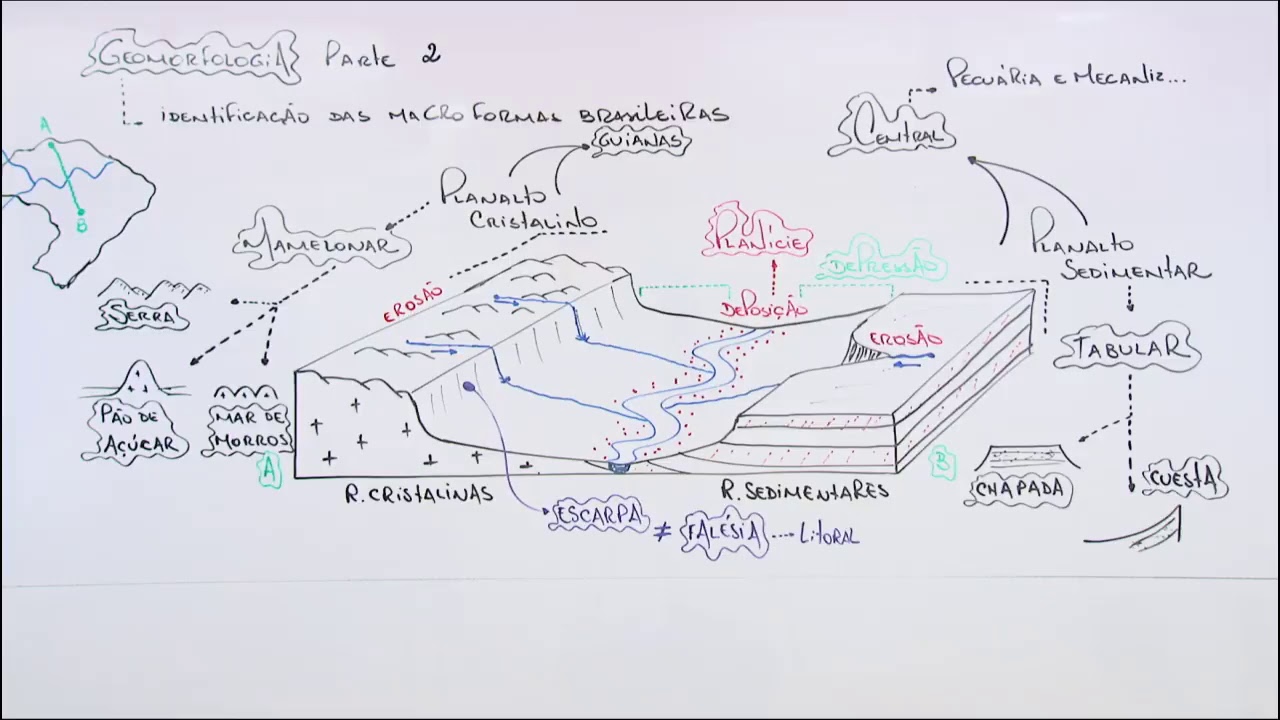 GEOMORFOLOGIA PARTE 2
IDENTIFICAÇÃO DAS MACRO FORMAS BRASILEIRAS
PECUÁRIA E MECANIZ...
CENTRAL
GUIANAS
A
B
PLANALTO
CRISTALINO
MAMELONAR
SERRA
PÃO DE
AÇÚCAR
MAR DE
MORROS
EROSÃO
PLANÍCIE
DEPRESSÃO
DEPOSIÇÃO
EROSÃO
PLANALTO
SEDIMENTAR
TABULAR
CHAPADA
CUESTA
A
B
R. CRISTALINAS
R. SEDIMENTARES
ESCARPA ≠ FALÉSIA ---- LITORAL